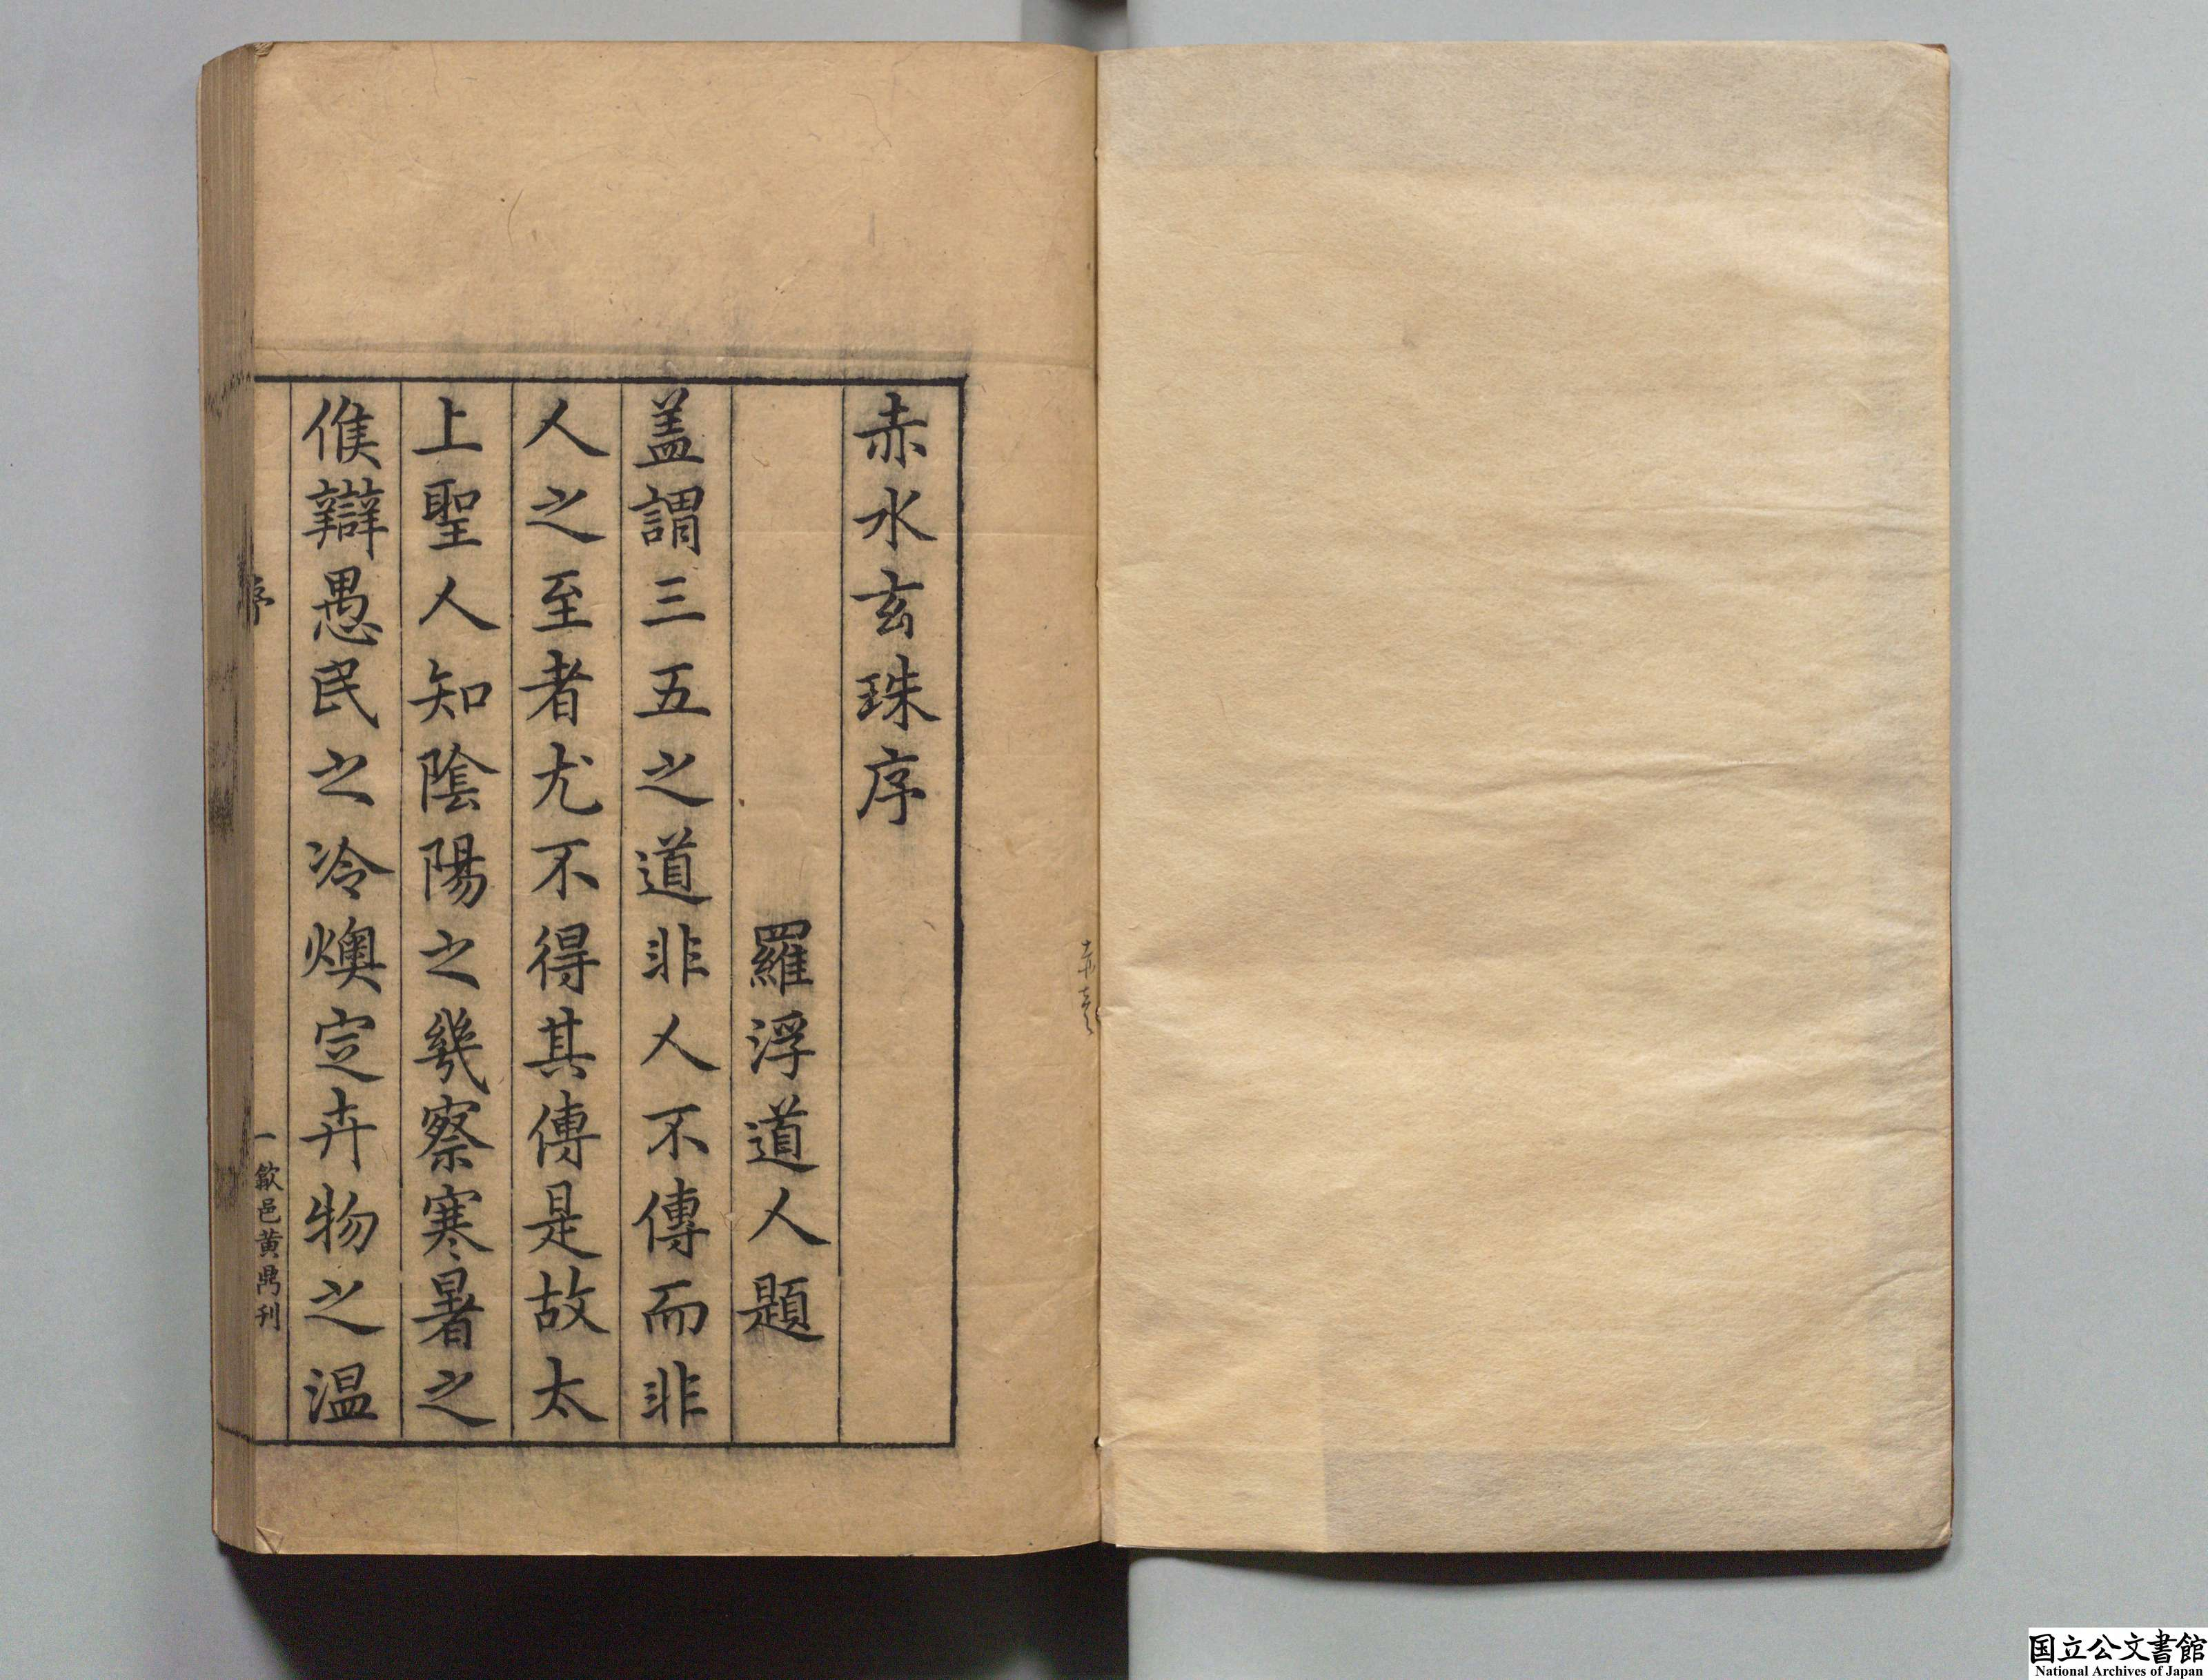 赤水玄珠序
羅浮道人題
盖謂三五之道非人不傳而非
人之至者尤不得其傳是故太
上聖人知隂陽之幾察寒暑之
候辯愚民之冷燠定卉物之温
序
一
歙邑黄鼎刊
国立公文書館
National Archives of Japan